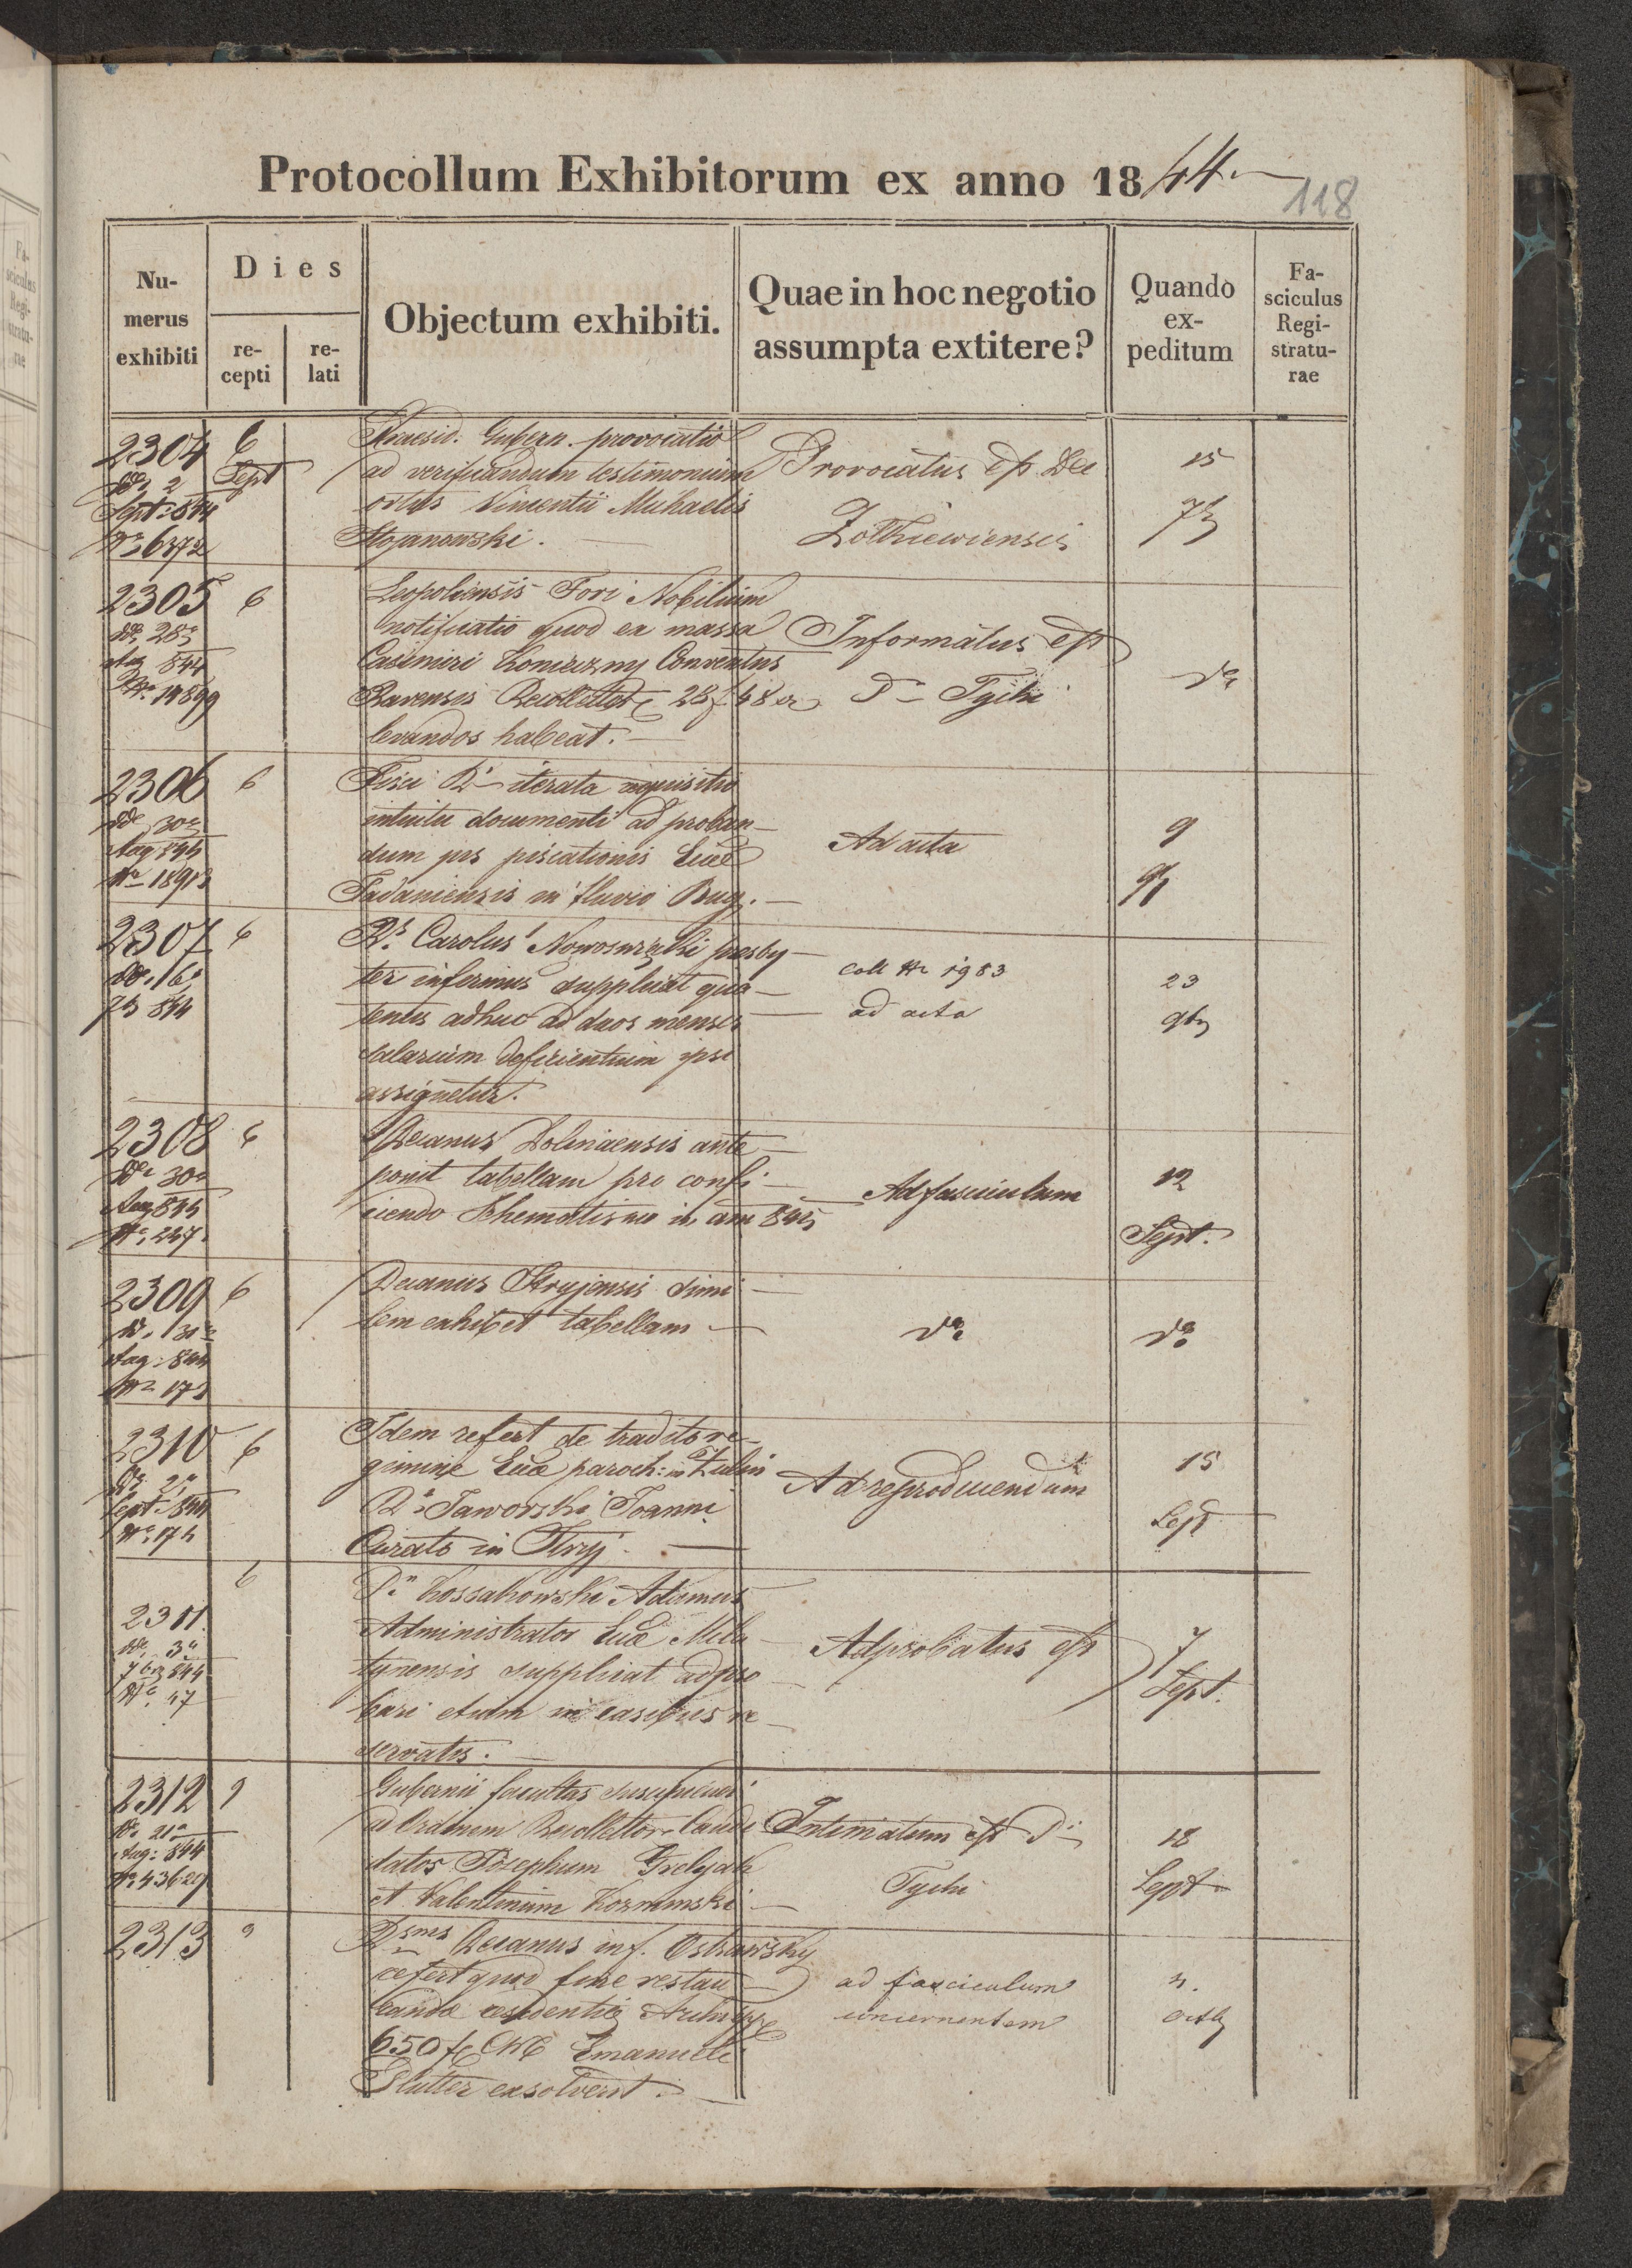 Protocollum Exhibitorum ex anno 1844.
118
Nu-
merus
exhibiti
Dies
re-
cepti
re-
lati
Objectum exhibiti.
Quae in hoc negotio
assumpta extitere?
Quando
ex-
peditum
Fa-
sciculus
Regi-
stratu-
rae
2304
dd. 2
Sept: 844
Nr. 6372
6
Sept
Praesid. Gubern. provocatio
ad verificandum testimonium
ortus Vincentii Michaelis
Stojanowski.
Provocatus est Dec
Zolkiewiensis
15
7b
2305
dd. 28
Aug 844
Nr. 19899
6
Leopoliensis Fori Nobilium
notificatio quod ex massa
Casimiri Koniuszny Conventus
Ravensis Recollector 28 f 48 xr
levandos habeat.
Informatus est
Tychi
do
2306
dd. 30
Aug 844
Nr. 18913
6
Fisci iterata requisitio
intuitu documenti ad proban-
dum jus piscationis Ecclae
Tadaniensis in fluvio Bug.
Ad acta
9
2307
dd. 16
7b 844
6
Carolus presby-
ter infirmus supplicat qua-
tenus adhuc ad duos menses
salarium deficientium ipsi
assignetur.
coll Nr 1983
ad acta
23
9b
2308
dd 30
Aug 844
Nr. 247
6
Decanus Dolinaensis ante-
ponit tabellam pro confi-
ciendo Schematismo in am 845
Ad fasciculum
12
Sept.
2309
dd. 31
Aug: 844
Nr 173
6
Decanus Stryjensis simi-
lem exhibet tabellam
do
do
2310
dd. 2
Sept: 844
Nr. 174
6
Idem refert de tradito re-
gimine Ecclae paroch: in Zulin
Jaworski Joanni
Curato in Stryj.
Ad reproducendum
15
Sept
2311.
dd. 3
7br 844
Nr. 47
6
Kossakowski Adamus
Administrator Ecclae Mila-
tynensis supplicat adpro-
bari etiam in casibus re-
servatis.
Adprobatus est
7
Sept.
2312
dd. 21
Aug: 844
Nr 43629
9
Gubernii facultas suscipiendi
ad Ordinem Recollector Candi-
datos Josephum Grelyak
et Valentinum
Intimatum est
Tychi
18
Sept
2313
9
Decanus inf. Ostrawsky
refert quod fine restau-
randae residentiae
650 f CM Emanueli
exsolverit.
ad fasciculum
concernentem
Octb